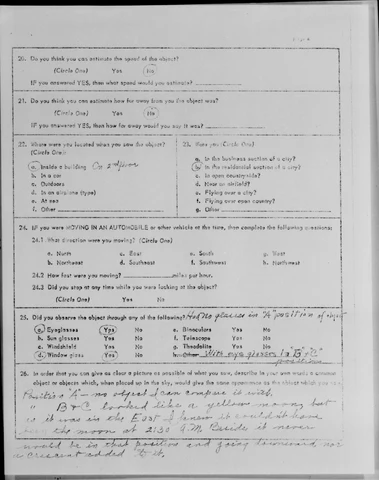 20. Do you think you can estimate the speed of the object?
(Circle One) Yes No
IF you answered YES, then what speed would you estimate?
21. Do you think you can estimate how far away from you the object was?
(Circle One) Yes No
IF you answered YES, then how far away would you say it was?
22. Where were you located when you saw the object?
(Circle One)
a. Inside a building On 2nd floor
b. In a car
c. Outdoors
d. In an airplane (type)
e. At sea
f. Other
23. Were you (Circle One)
a. In the business section of a city?
b. In the residential section of a city?
c. In open countryside?
d. Near an airfield?
e. Flying over a city?
f. Flying over open country?
g. Other
24. IF you were MOVING IN AN AUTOMOBILE or other vehicle at the time, then complete the following questions:
24.1 What direction were you moving? (Circle One)
a. North c. East e. South g. West
b. Northeast d. Southeast f. Southwest h. Northwest
24.2 How fast were you moving? miles per hour.
24.3 Did you stop at any time while you were looking at the object?
(Circle One) Yes No
25. Did you observe the object through any of the following? Had no glasses in "A" position of object
a. Eyeglasses Yes No e. Binoculars Yes No
b. Sun glasses Yes No f. Telescope Yes No
c. Windshield Yes No g. Theodolite Yes No
d. Window glass Yes No h. Other With eye glasses in "B" + "C"
positions
26. In order that you can give as clear a picture as possible of what you saw, describe in your own words a common
object or objects which, when placed up in the sky, would give the same appearance as the object which you saw.
Position "A" - no object I can compare it with.
" B + C looked like a yellow moon, but
as it was in the East I knew it couldn't have
been the moon at 2:30 A.M. Beside it never
would be in that position and going downward nor
a crescent added to it.